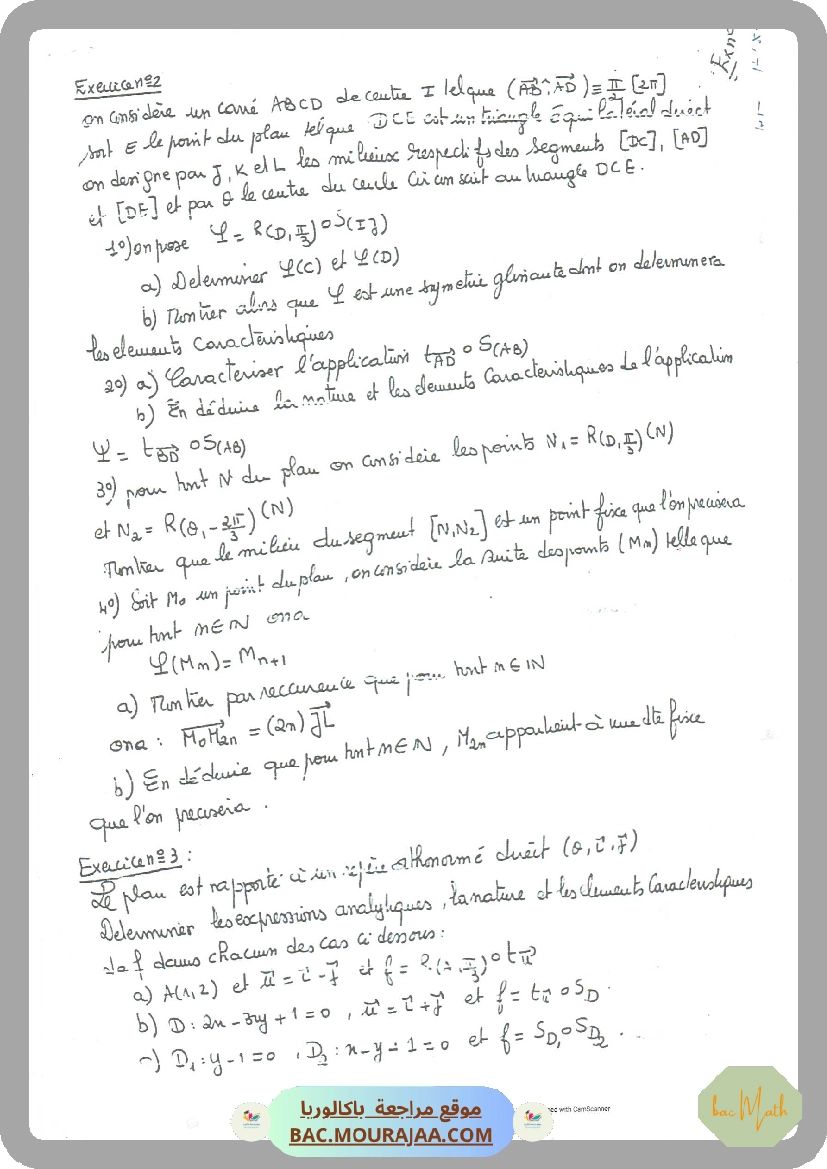 Exercice n°2
on considère un carré ABCD de centre I tel que (AB^,AD) ≡ π/2 [2π]
soit E le point du plan tel que DCE est un triangle équilatéral direct
on designe par J, K et L les milieux respectifs des segments [DC], [AD]
et [DE] et par θ le centre du cercle circonscrit au triangle DCE.
1°) on pose φ = R(D, π/3) o S(IJ)
a) Determiner φ(C) et φ(D)
b) Montrer alors que φ est une symetrie glissante dont on determinera
les elements Caractéristiques
2°) a) Caractériser l'application t→AD o S(AB)
b) En déduire la nature et les elements Caracteristiques de l'application
Ψ = t→BD o S(AB)
3°) pour tout N du plan on considère les points N₁ = R(D, π/3)(N)
et N₂ = R(θ, -2π/3)(N)
Montrer que le milieu du segment [N₁N₂] est un point fixe que l'on precisera
4°) Soit M₀ un point du plan, on considère la suite des points (Mn) telle que
pour tout n∈ℕ on a
φ(Mn) = Mn+1
a) Montrer par reccurence que pour tout n∈ℕ
on a : →M₀M2n = (2n) →JL
b) En déduire que pour tout n∈ℕ, M2n appartient à une dte fixe
que l'on precisera.
Exercice n° 3 :
Le plan est rapporté à un repère orthonormé direct (θ, →i, →j)
Determiner les expressions analytiques, la nature et les elements Caracteristiques
de f dans chacun des cas ci dessous :
a) A(1,2) et →u = →i - →j et f = R(A, π/3) o t→u
b) D : 2x - 3y + 1 = 0, →u = →i + →j et f = t→u o SD.
c) D₁ : y - 1 = 0, D₂ : x - y - 1 = 0 et f = SD₁ o SD₂.
موقع مراجعة باكالوريا
BAC.MOURAJAA.COM
with CamScanner
bac Math